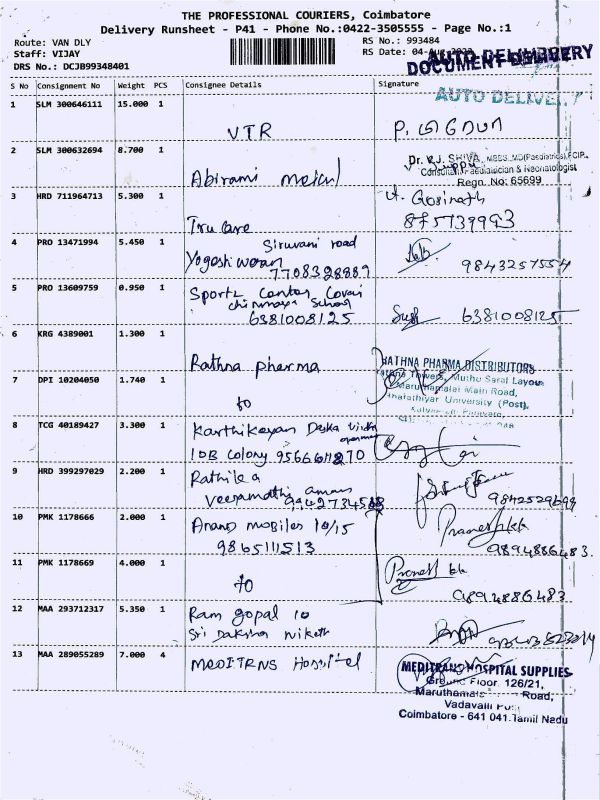 THE PROFESSIONAL COURIERS, Coimbatore
Delivery Runsheet - P41 - Phone No.:0422-3505555 - Page No.:1
Route: VAN DLY
Staff: VIJAY
DRS No.: DCJB99348401
RS No.: 993484
RS Date: 04-Aug-2022
AUTO DELIVERY
DOCUMENT DELIVERY
AUTO DELIVERY
S No Consignment No Weight PCS Consignee Details Signature
1 SLM 300646111 15.000 1
VTR
2 SLM 300632694 8.700 1
Abirami
Dr. R.J. SHIVA, MBBS.,MD(Paediatrics),FCIP.,
Consultant Paediatrician & Neonatologist
Regn. No: 65699
3 HRD 711964713 5.300 1
Tru Care
Gopinath
4 PRO 13471994 5.450 1
Siruvani road
Yogeshwaran
7708328889
9843257554
5 PRO 13609759 0.950 1
Sports Center Covai
chinmaya School
6381008125
6381008125
6 KRG 4389001 1.300 1
Rathna pharma
RATHNA PHARMA DISTRIBUTORS
Rathna Towers, Muthu Sarat Layout
Maruthamalai Main Road,
Bharathiyar University (Post),
7 DPI 10204050 1.740 1
to
8 TCG 40189427 3.300 1
Karthikeyan
IOB Colony
9 HRD 399297029 2.200 1
Rathika
Veeramathi amman
9842529699
10 PMK 1178666 2.000 1
Anand mobiles 10/15
9865111513
Pranesh kk
9894886483.
11 PMK 1178669 4.000 1
to
Pranesh kk
9894886483
12 MAA 293712317 5.350 1
Ram gopal 10
Sri Daksha Niketh
13 MAA 289055289 7.000 4
MEDITRNS Hospitel
MEDITRANS HOSPITAL SUPPLIES
Ground Floor, 126/21,
Road,
Vadavalli Post
Coimbatore - 641 041. Tamil Nadu